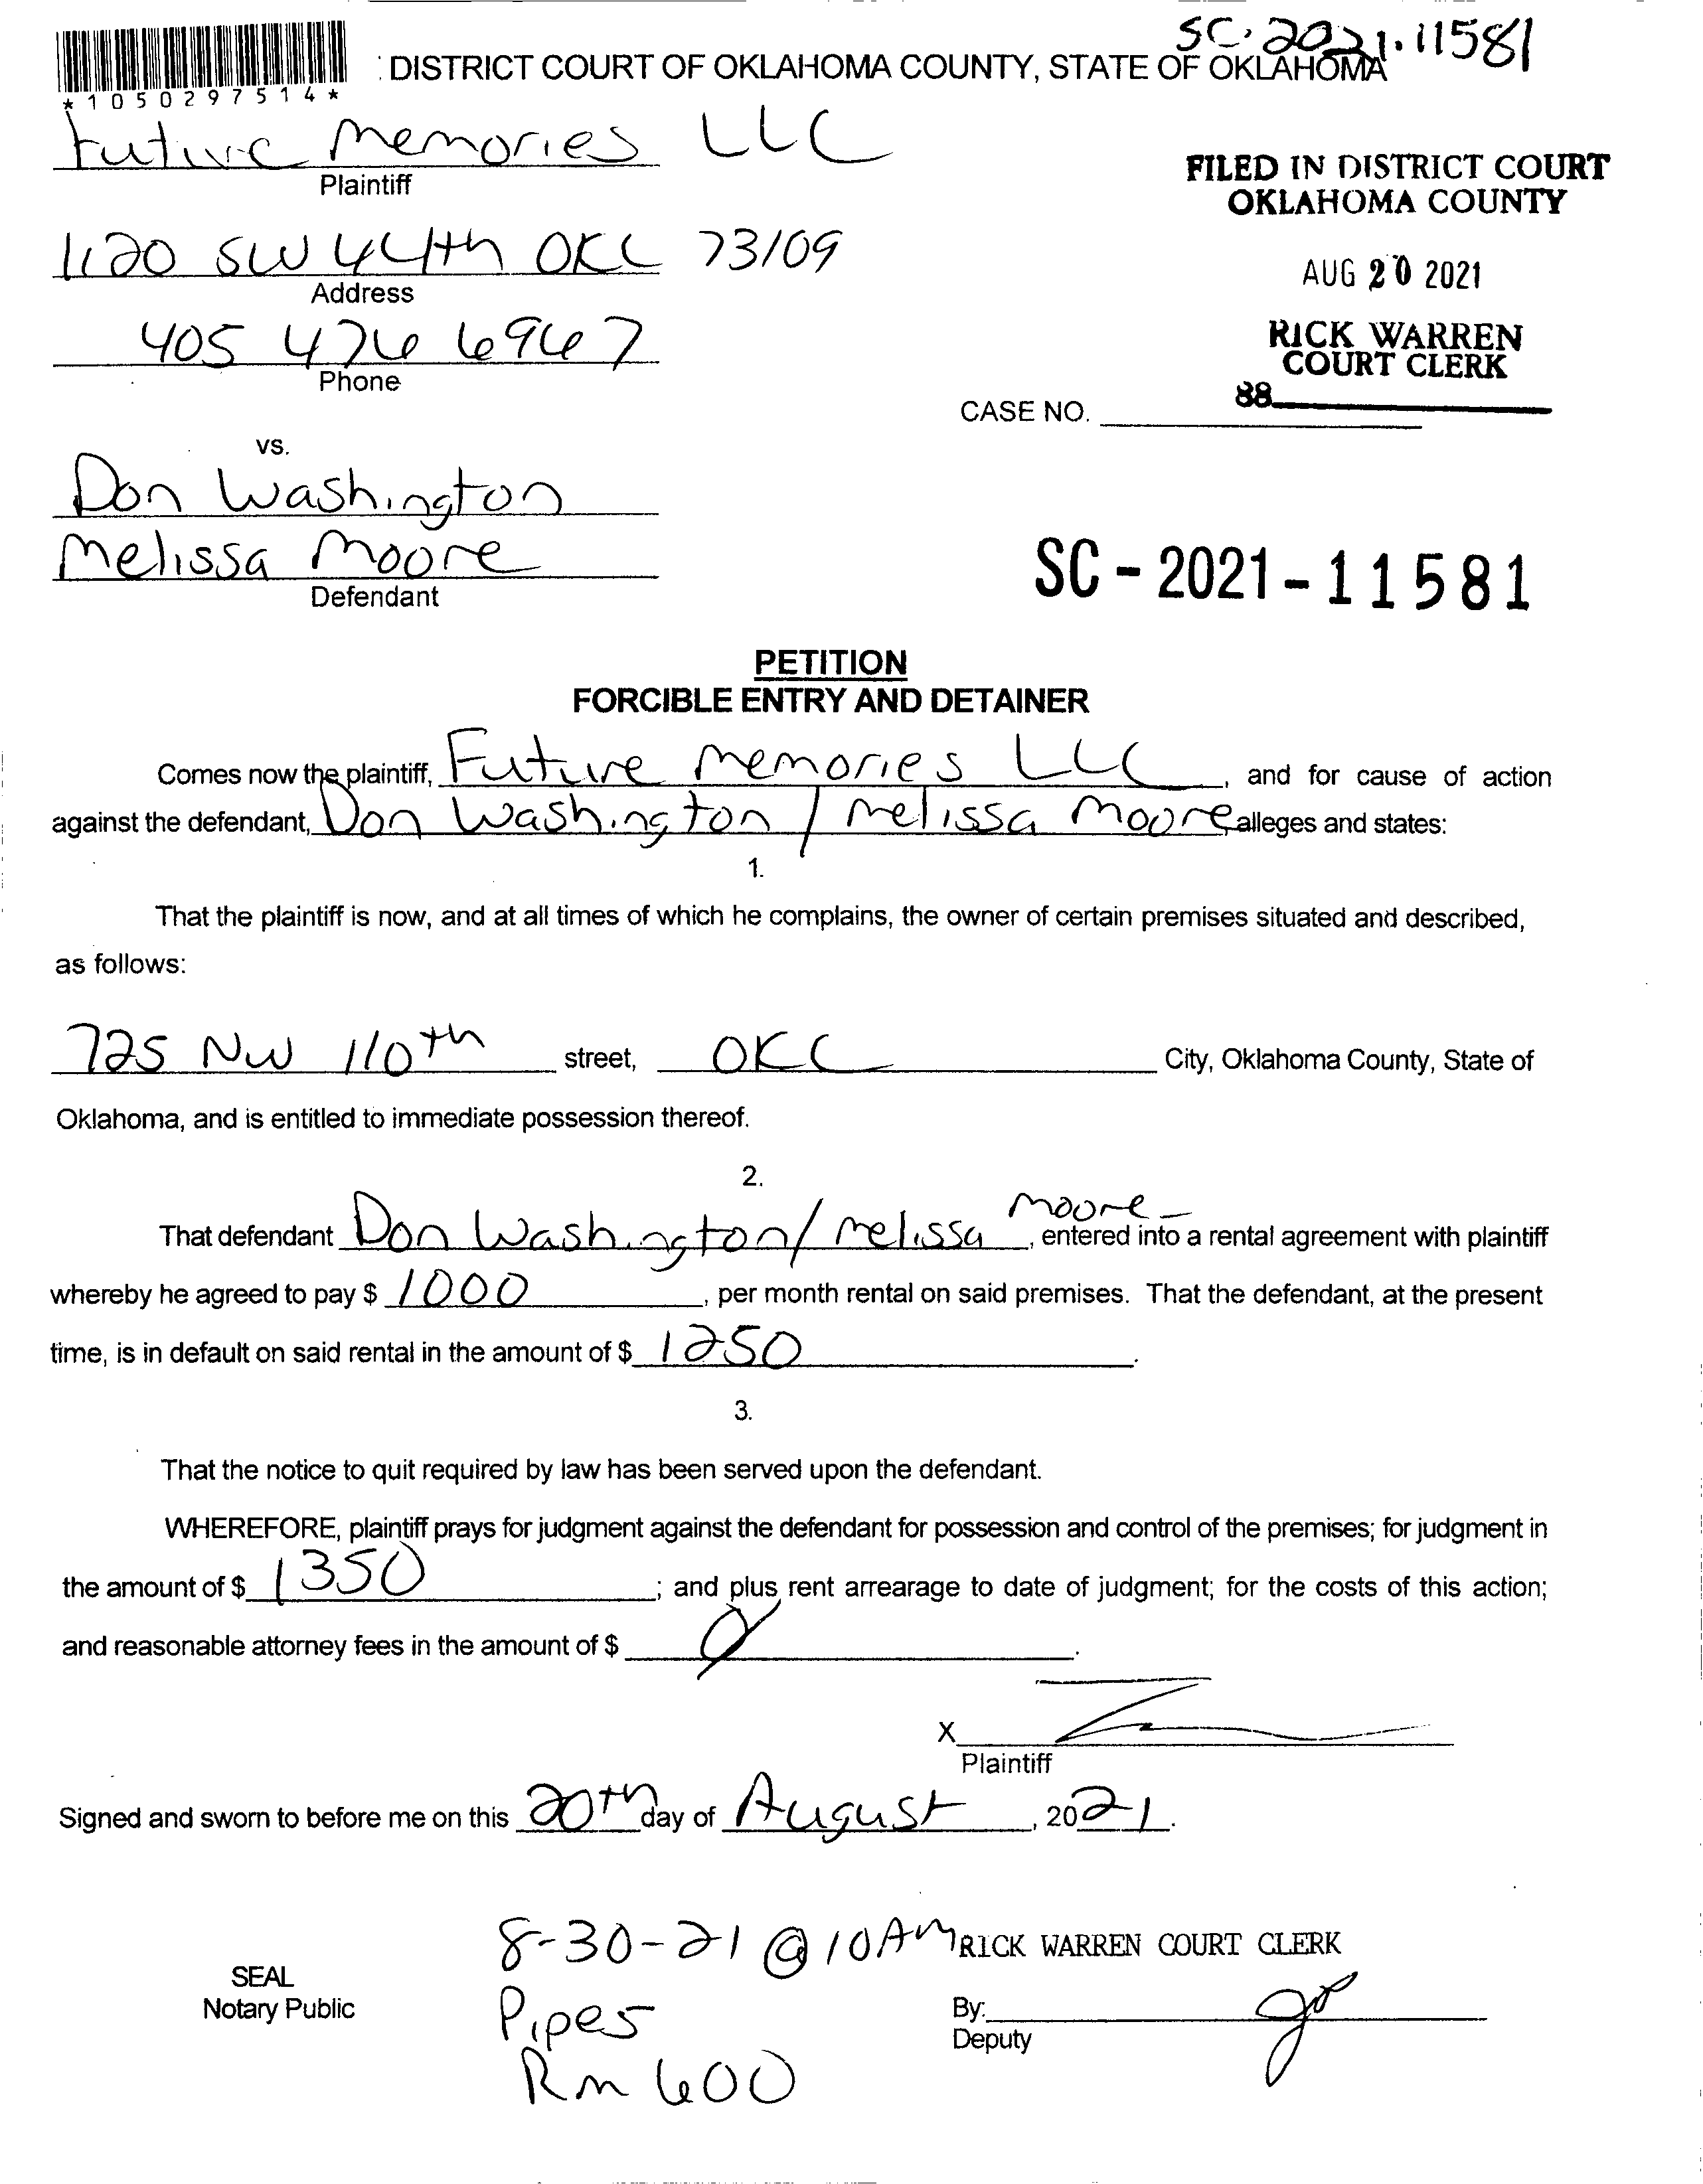 SC-2021-11581
: DISTRICT COURT OF OKLAHOMA COUNTY, STATE OF OKLAHOMA
*1050297514*
Future Memories LLC
Plaintiff
FILED IN DISTRICT COURT
OKLAHOMA COUNTY
1120 SW 44th OKC 73109
Address
AUG 20 2021
405 476 6967
Phone
RICK WARREN
COURT CLERK
88
CASE NO.
vs.
Don Washington
Melissa Moore
Defendant
SC-2021-11581
PETITION
FORCIBLE ENTRY AND DETAINER
Comes now the plaintiff, Future Memories LLC, and for cause of action
against the defendant, Don Washington / Melissa Moore alleges and states:
1.
That the plaintiff is now, and at all times of which he complains, the owner of certain premises situated and described,
as follows:
725 NW 110th street, OKC City, Oklahoma County, State of
Oklahoma, and is entitled to immediate possession thereof.
2.
That defendant Don Washington/ Melissa Moore, entered into a rental agreement with plaintiff
whereby he agreed to pay $ 1000, per month rental on said premises. That the defendant, at the present
time, is in default on said rental in the amount of $ 1250.
3.
That the notice to quit required by law has been served upon the defendant.
WHEREFORE, plaintiff prays for judgment against the defendant for possession and control of the premises; for judgment in
the amount of $ 1350; and plus rent arrearage to date of judgment; for the costs of this action;
and reasonable attorney fees in the amount of $ 0.
X
Plaintiff
Signed and sworn to before me on this 20th day of August, 2021.
8-30-21 @ 10AM
RICK WARREN COURT CLERK
SEAL
Notary Public
Pipes
Rm 600
By:
Deputy